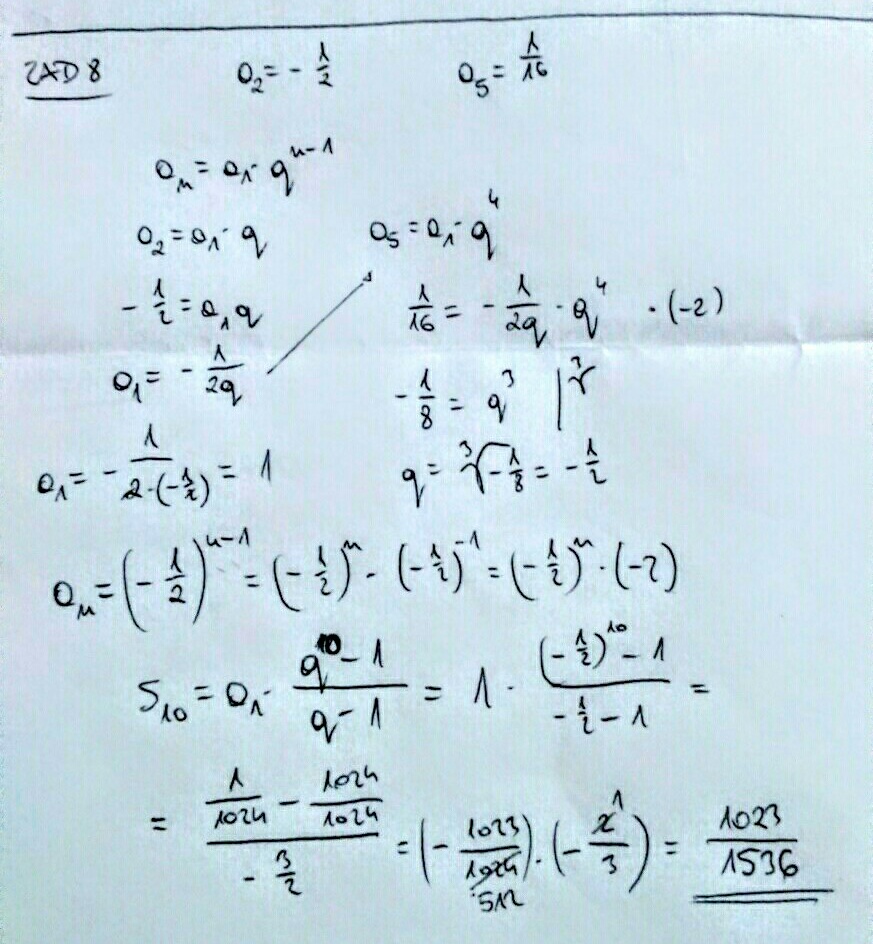 ZAD 8 a₂ = -1/2 a₅ = 1/16
aₙ = a₁·qⁿ⁻¹
a₂ = a₁·q a₅ = a₁·q⁴
-1/2 = a₁q 1/16 = -1/2q · q⁴ ·(-2)
a₁ = -1/2q -1/8 = q³ |³√
a₁ = -1/(2·(-1/2)) = 1 q = ³√-1/8 = -1/2
aₙ = (-1/2)ⁿ⁻¹ = (-1/2)ⁿ · (-1/2)⁻¹ = (-1/2)ⁿ · (-2)
S₁₀ = a₁· (q¹⁰-1)/(q-1) = 1 · ((-1/2)¹⁰-1)/(-1/2-1) =
= (1/1024 - 1024/1024)/(-3/2) = (-1023/1024 512)·(-2 1/3) = 1023/1536